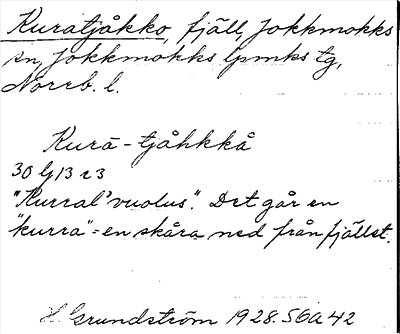 Kuratjåkko, fjäll, Jokkmokks
sn, Jokkmokks lpmks tg,
Norrb. l.
Kurā-tjåhkkå
30 lj 13 r 3
"Kurral'vuolus". Det går en
"kurra" = en skåra ned från fjället.
H Grundström 1928. S6a 42